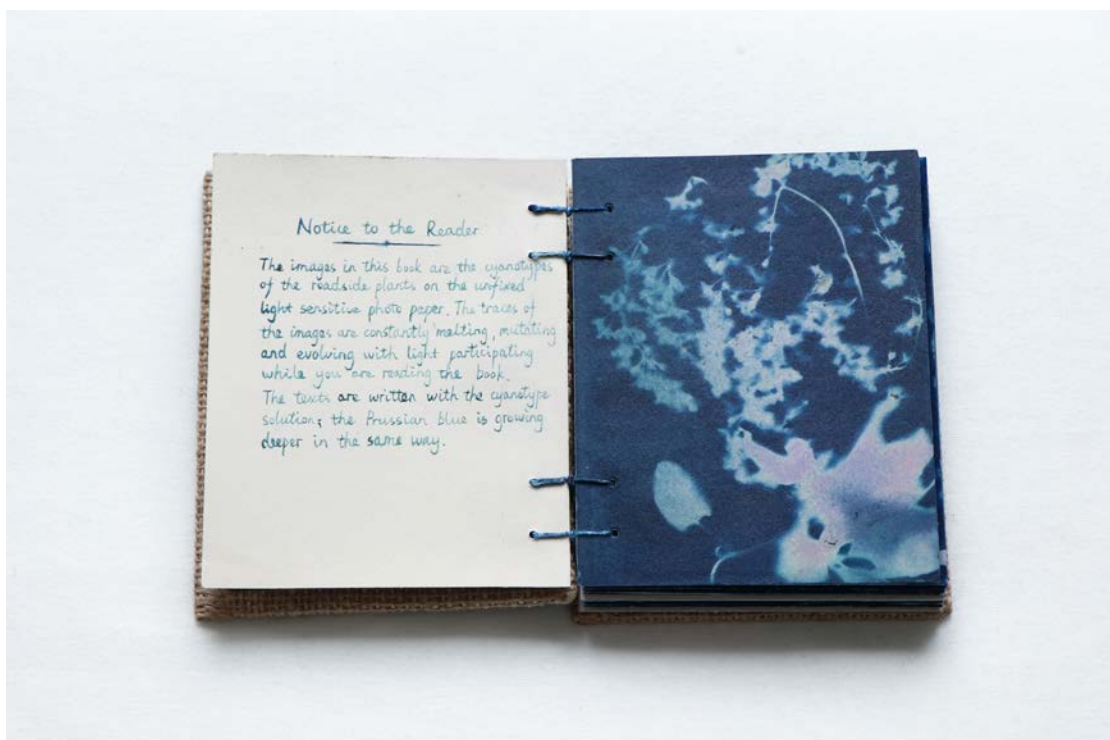 Notice to the Reader
The images in this book are the cyanotypes
of the roadside plants on the unfixed
light sensitive photo paper. The traces of
the images are constantly melting, mutating
and evolving with light participating
while you are reading the book.
The texts are written with the cyanotype
solution; the Prussian blue is growing
deeper in the same way.